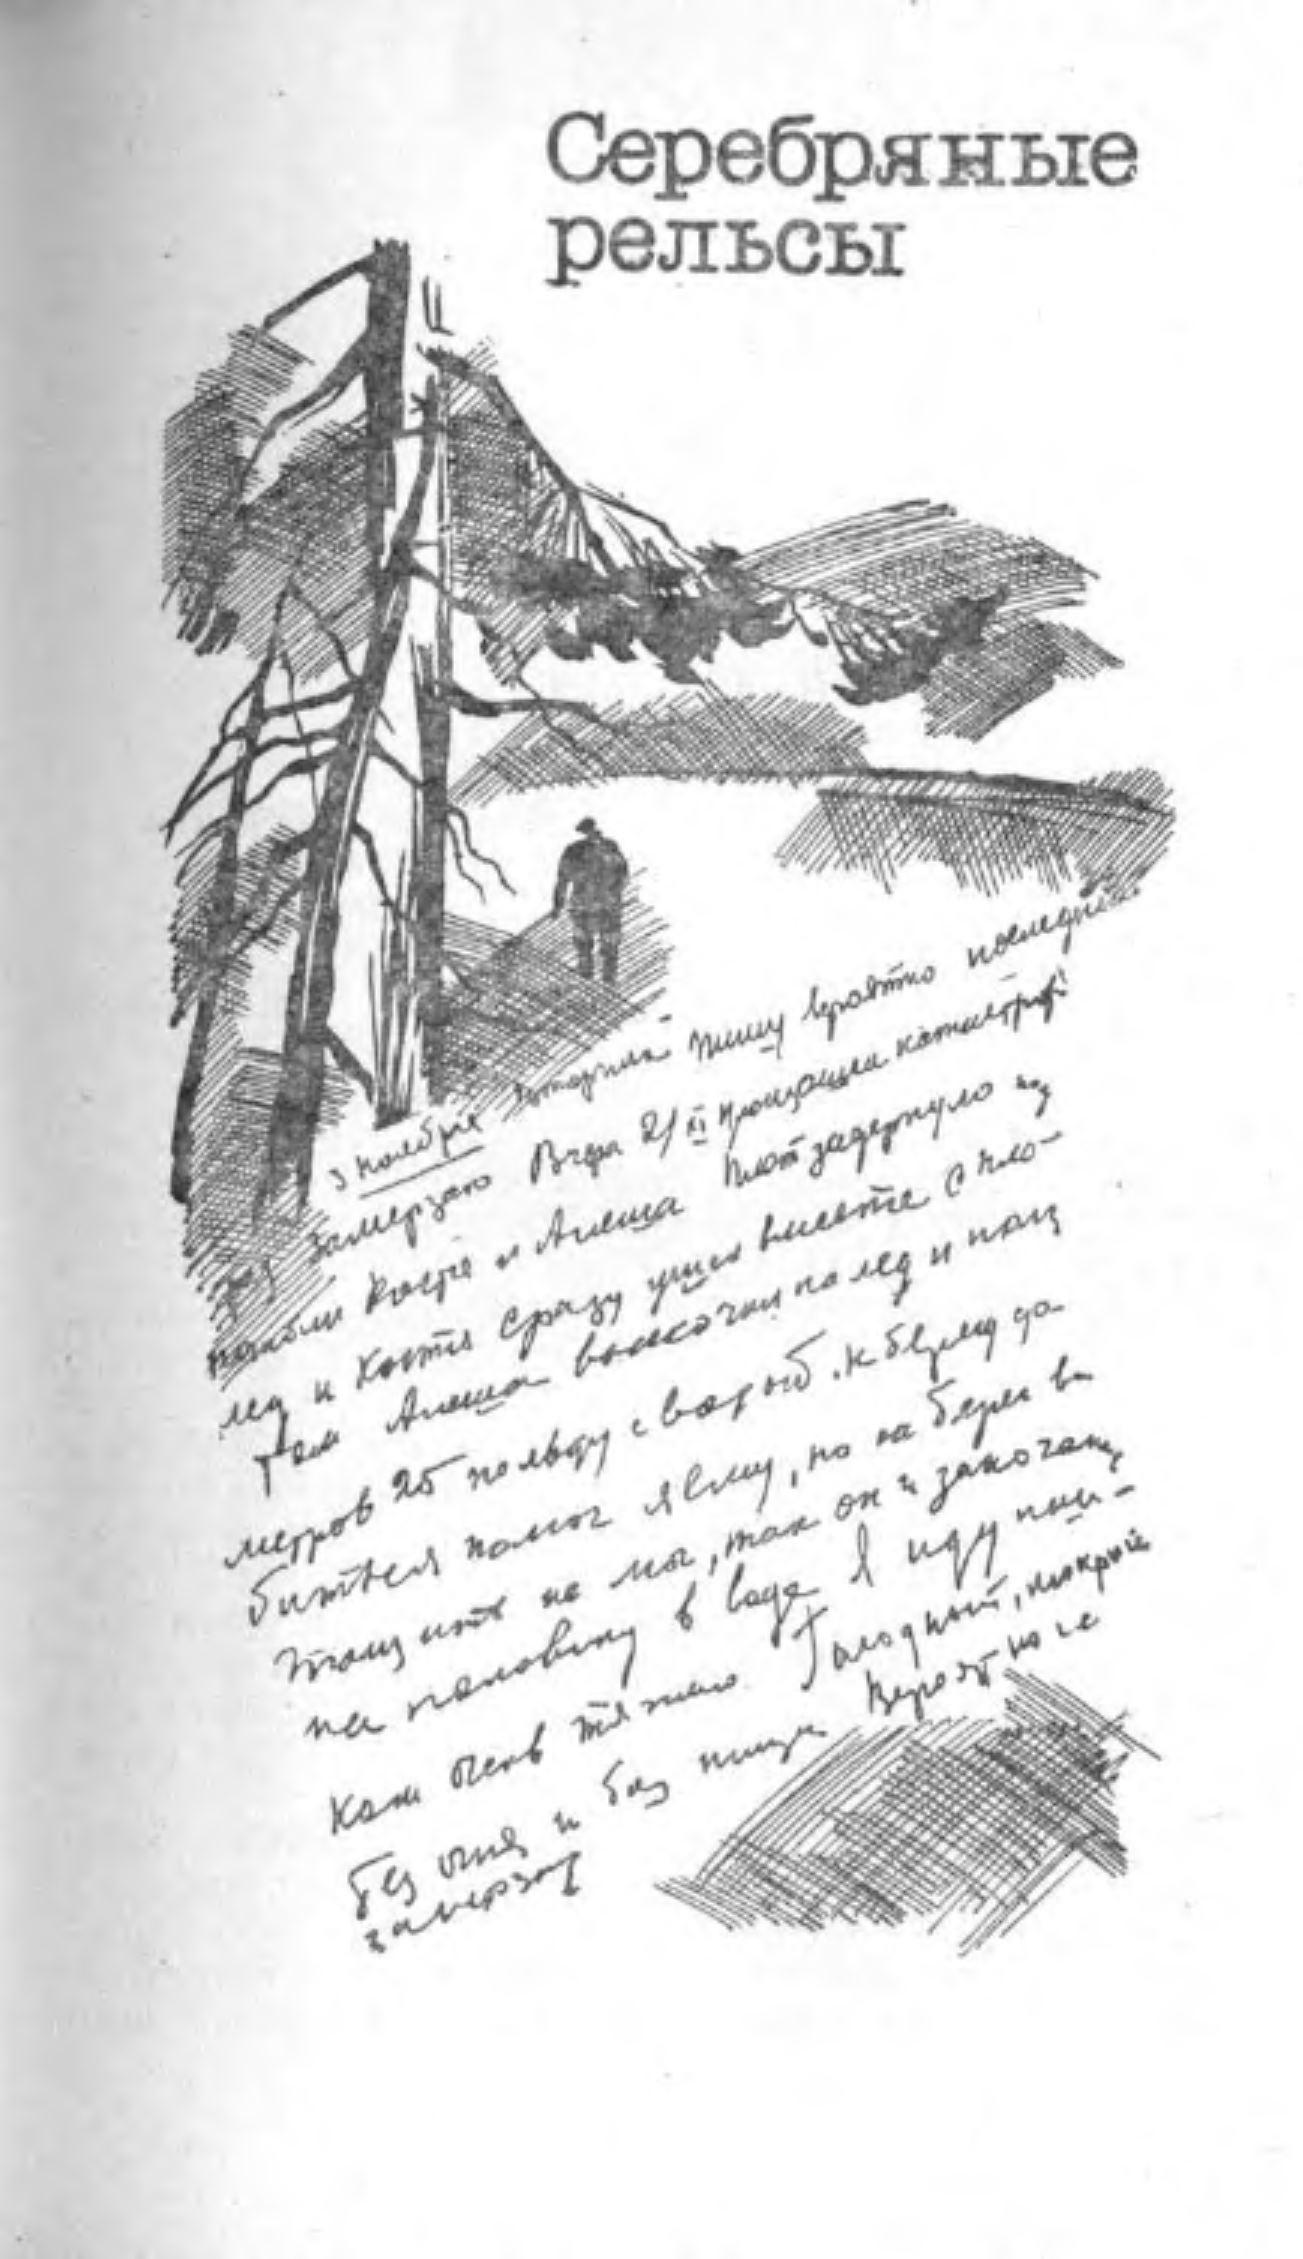 Серебряные
рельсы
3 ноября Пишу вероятно последний
раз Замерзаю Вчера 2/XI произошла катастрофа
погибли Костя и Алеша Плот задернуло под
лед и Костя сразу ушел вместе с пло-
том Алеша выскочил на лед и полз
метров 25 по льду с водой. К берегу до
биться помог я ему, но на берег вы
тащить не мог, так он и закоченел
на половину в воде Я иду ползи-
ком очень тяжело. Голодный, мокрый
без огня и без пищи Вероятно се
замерзну